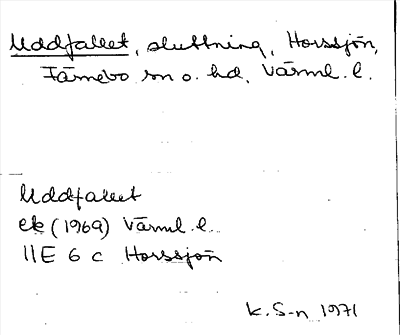 Uddfallet, sluttning, Horssjön,
Färnebo sn o. hd, Värml. l.
Uddfallet
ek (1969) Värml. l.
11E 6 c Horssjön
K. S-n 1971